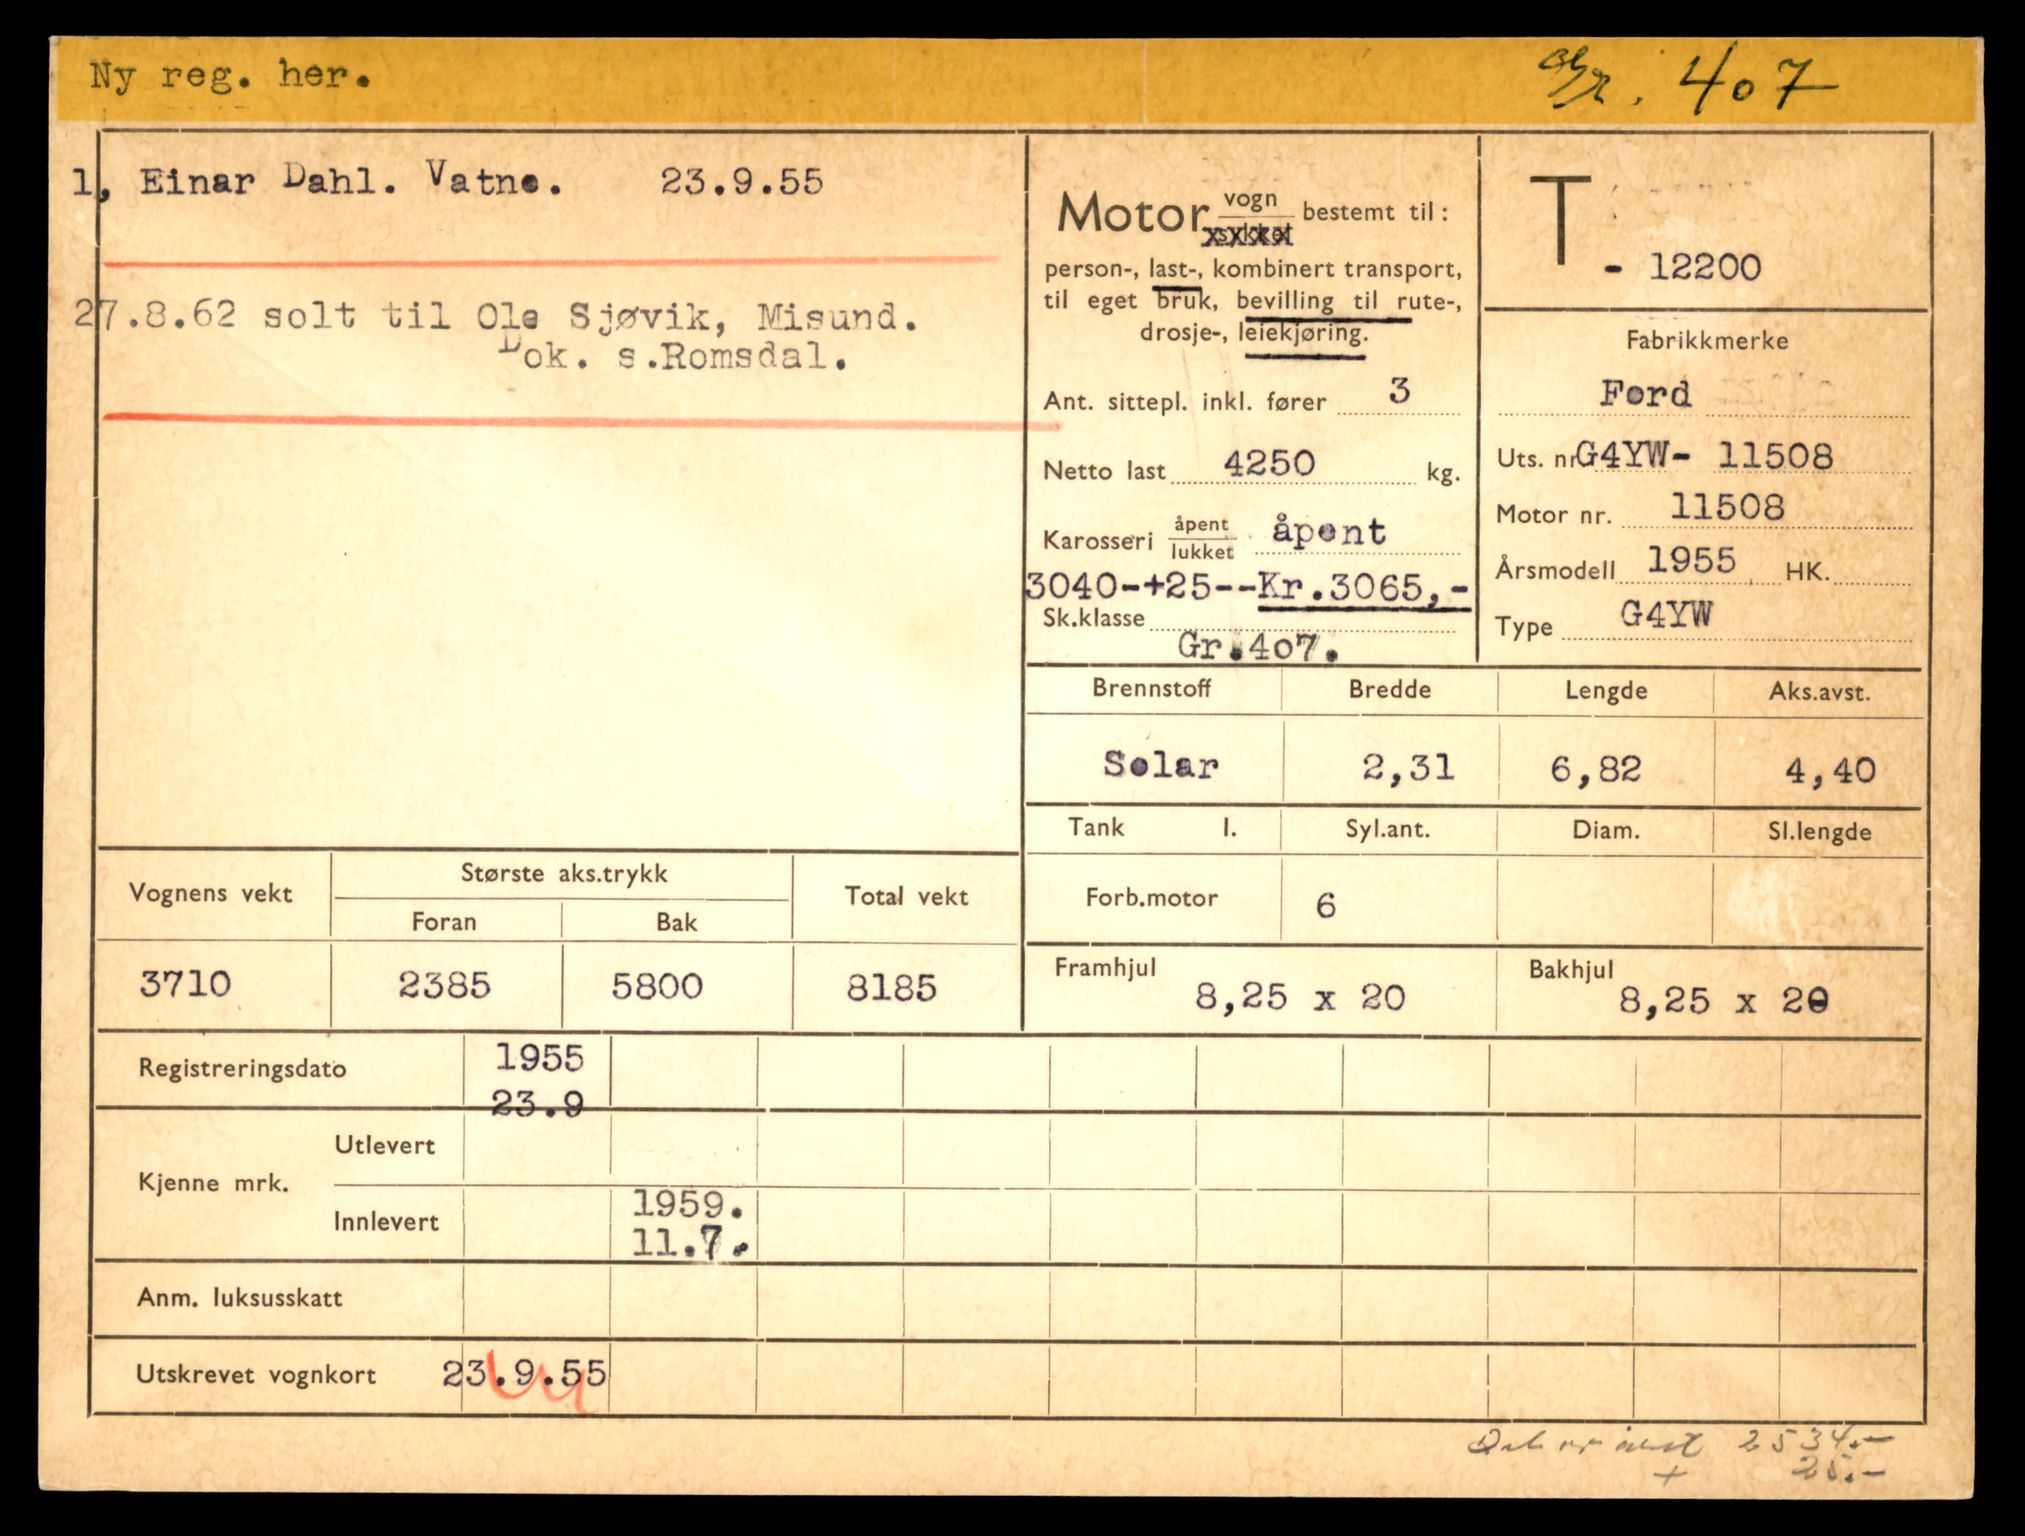 Ny reg. her.
Gr. 407
1, Einar Dahl. Vatne. 23.9.55
27.8.62 solt til Ole Sjøvik, Misund.
Dok. s.Romsdal.
Motor vogn bestemt til:
person-, last-, kombinert transport,
til eget bruk, bevilling til rute-,
drosje-, leiekjøring.
Ant. sittepl. inkl. fører 3
Netto last 4250 kg.
Karosseri åpent lukket åpent
3040-+25--Kr.3065,-
Sk.klasse
Gr.4o7.
T
- 12200
Fabrikkmerke
Ford
Uts. nr G4YW- 11508
Motor nr. 11508
Årsmodell 1955 HK.
Type G4YW
Brennstoff Bredde Lengde Aks.avst.
Solar 2,31 6,82 4,40
Tank l. Syl.ant. Diam. Sl.lengde
Forb.motor 6
Framhjul Bakhjul
8,25 x 20 8,25 x 20
Vognens vekt Største aks.trykk Total vekt
Foran Bak
3710 2385 5800 8185
Registreringsdato 1955
23.9
Kjenne mrk. Utlevert
Innlevert 1959.
11.7.
Anm. luksusskatt
Utskrevet vognkort 23.9.55
2534.-
+ 25.-